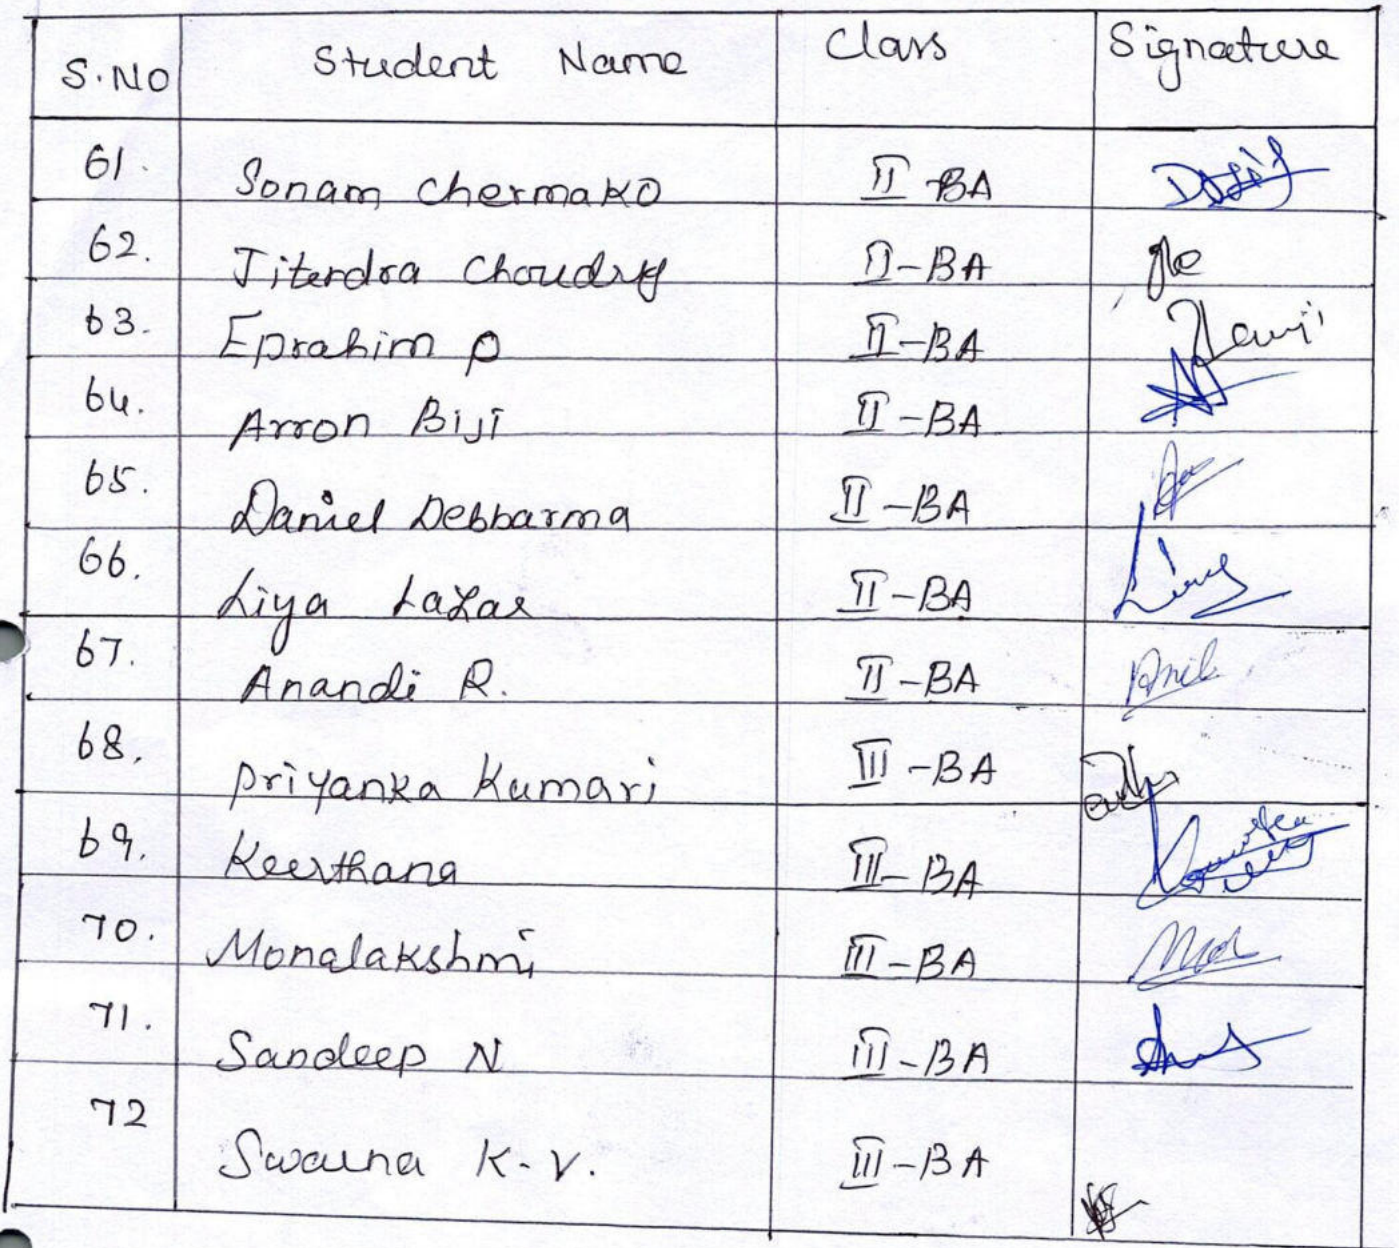 S.NO Student Name Class Signature
61. Sonam Chermako II-BA
62. Jitendra Choudry II-BA
63. Eprahim P II-BA
64. Arron Biji II-BA
65. Daniel Debbarma II-BA
66. Liya Lazar II-BA
67. Anandi R. II-BA
68. Priyanka Kumari III-BA
69. Keerthana III-BA
70. Monalakshmi III-BA
71. Sandeep N III-BA
72 Swarna K.V. III-BA